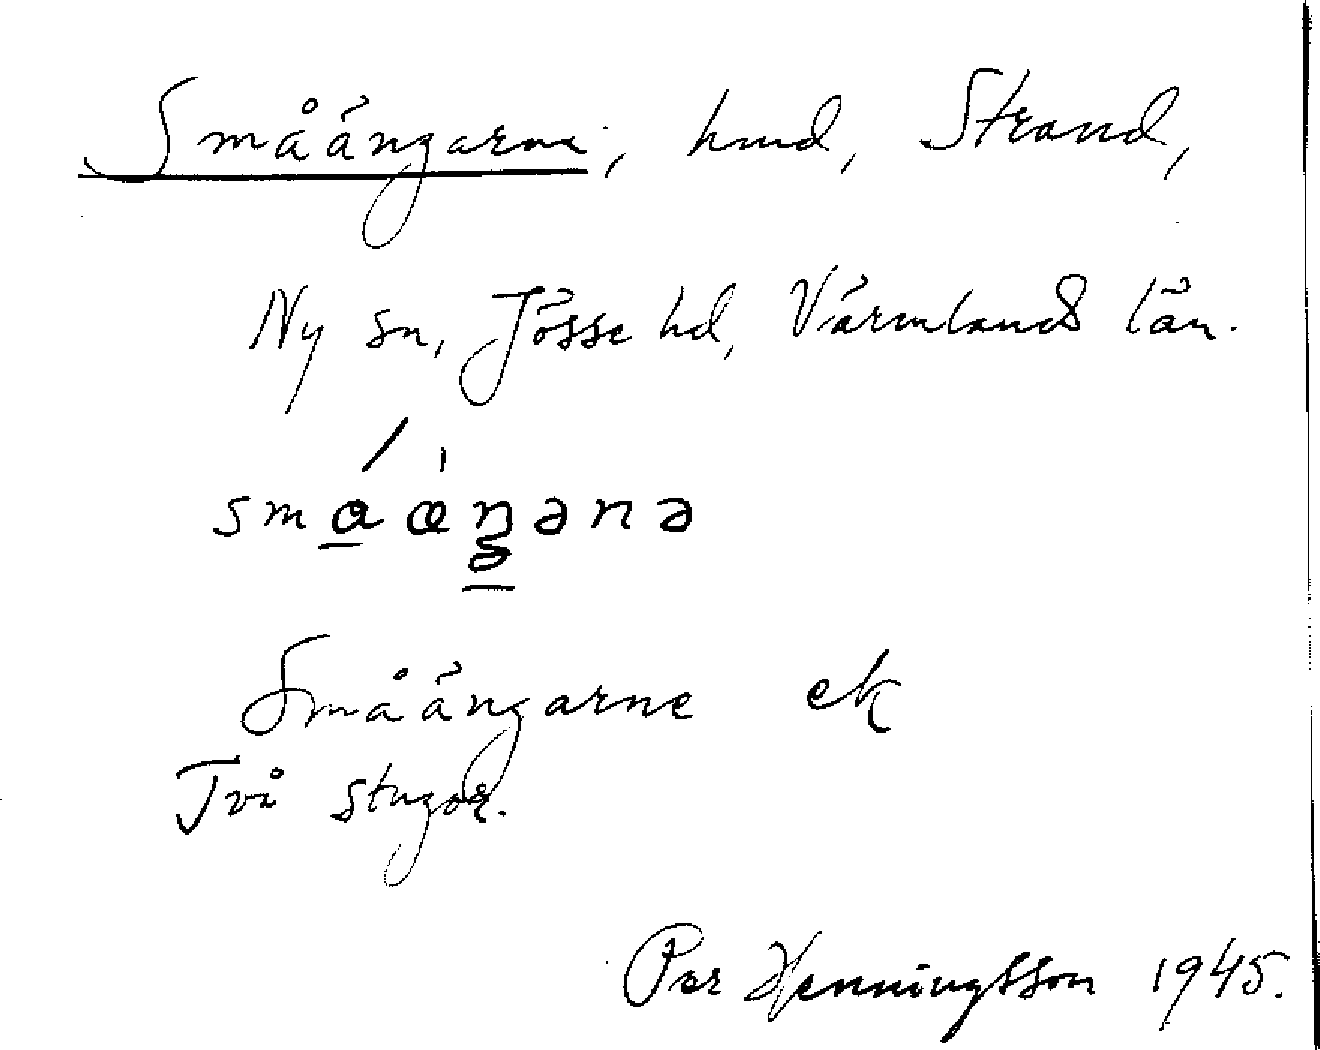 Småängarne, hmd, Strand,
Ny sn, Jösse hd, Värmlands län.
Småängarne ek
Två stugor.
Per Henningsson 1945.